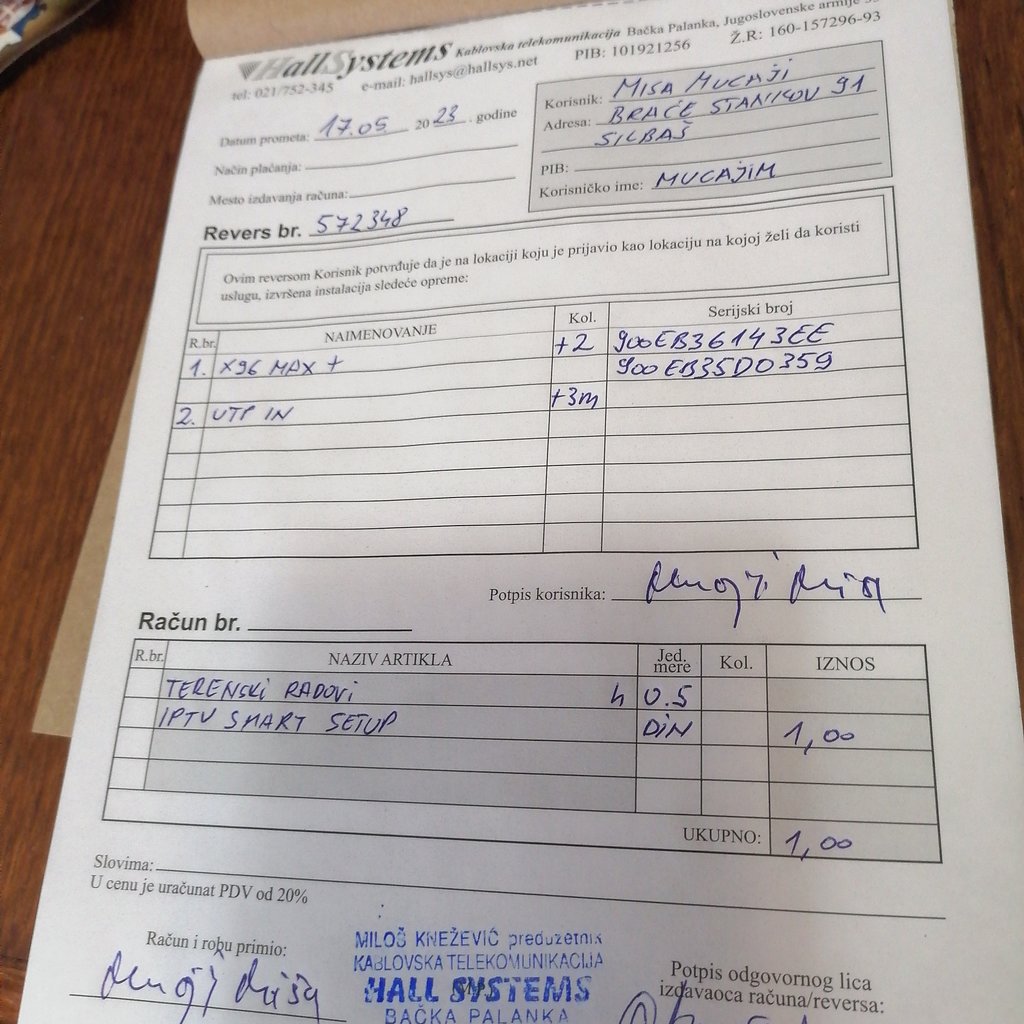 HallSystems Kablovska telekomunikacija Bačka Palanka, Jugoslovenske armije
tel: 021/752-345 e-mail: hallsys@hallsys.net PIB: 101921256 Ž.R: 160-157296-93
Datum prometa: 17.05 2023. godine
Način plaćanja:
Mesto izdavanja računa:
Korisnik: MISA MUCAJI
Adresa: BRAĆE STANKOV 91
SILBAŠ
PIB:
Korisničko ime: MUCAJIM
Revers br. 572348
Ovim reversom Korisnik potvrđuje da je na lokaciji koju je prijavio kao lokaciju na kojoj želi da koristi
uslugu, izvršena instalacija sledeće opreme:
R.br. NAIMENOVANJE Kol. Serijski broj
1. X96 MAX + +2 900EB36143EE
900EB35D0359
2. UTP IN +3m
Potpis korisnika:
Račun br.
R.br. NAZIV ARTIKLA Jed. mere Kol. IZNOS
TERENSKI RADOVI h 0.5
IPTV SMART SETUP DIN 1,00
UKUPNO: 1,00
Slovima:
U cenu je uračunat PDV od 20%
Račun i robu primio:
MILOŠ KNEŽEVIĆ preduzetnik
KABLOVSKA TELEKOMUNIKACIJA
HALL SYSTEMS
BAČKA PALANKA
Potpis odgovornog lica
izdavaoca računa/reversa: